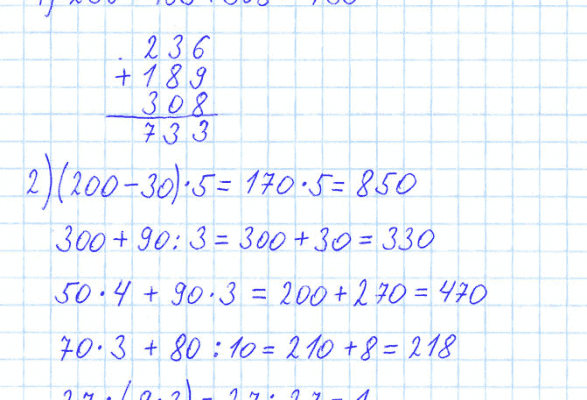 236
+ 189
308
733
2) (200-30)·5 = 170·5 = 850
300 + 90 : 3 = 300 + 30 = 330
50·4 + 90·3 = 200 + 270 = 470
70·3 + 80 : 10 = 210 + 8 = 218